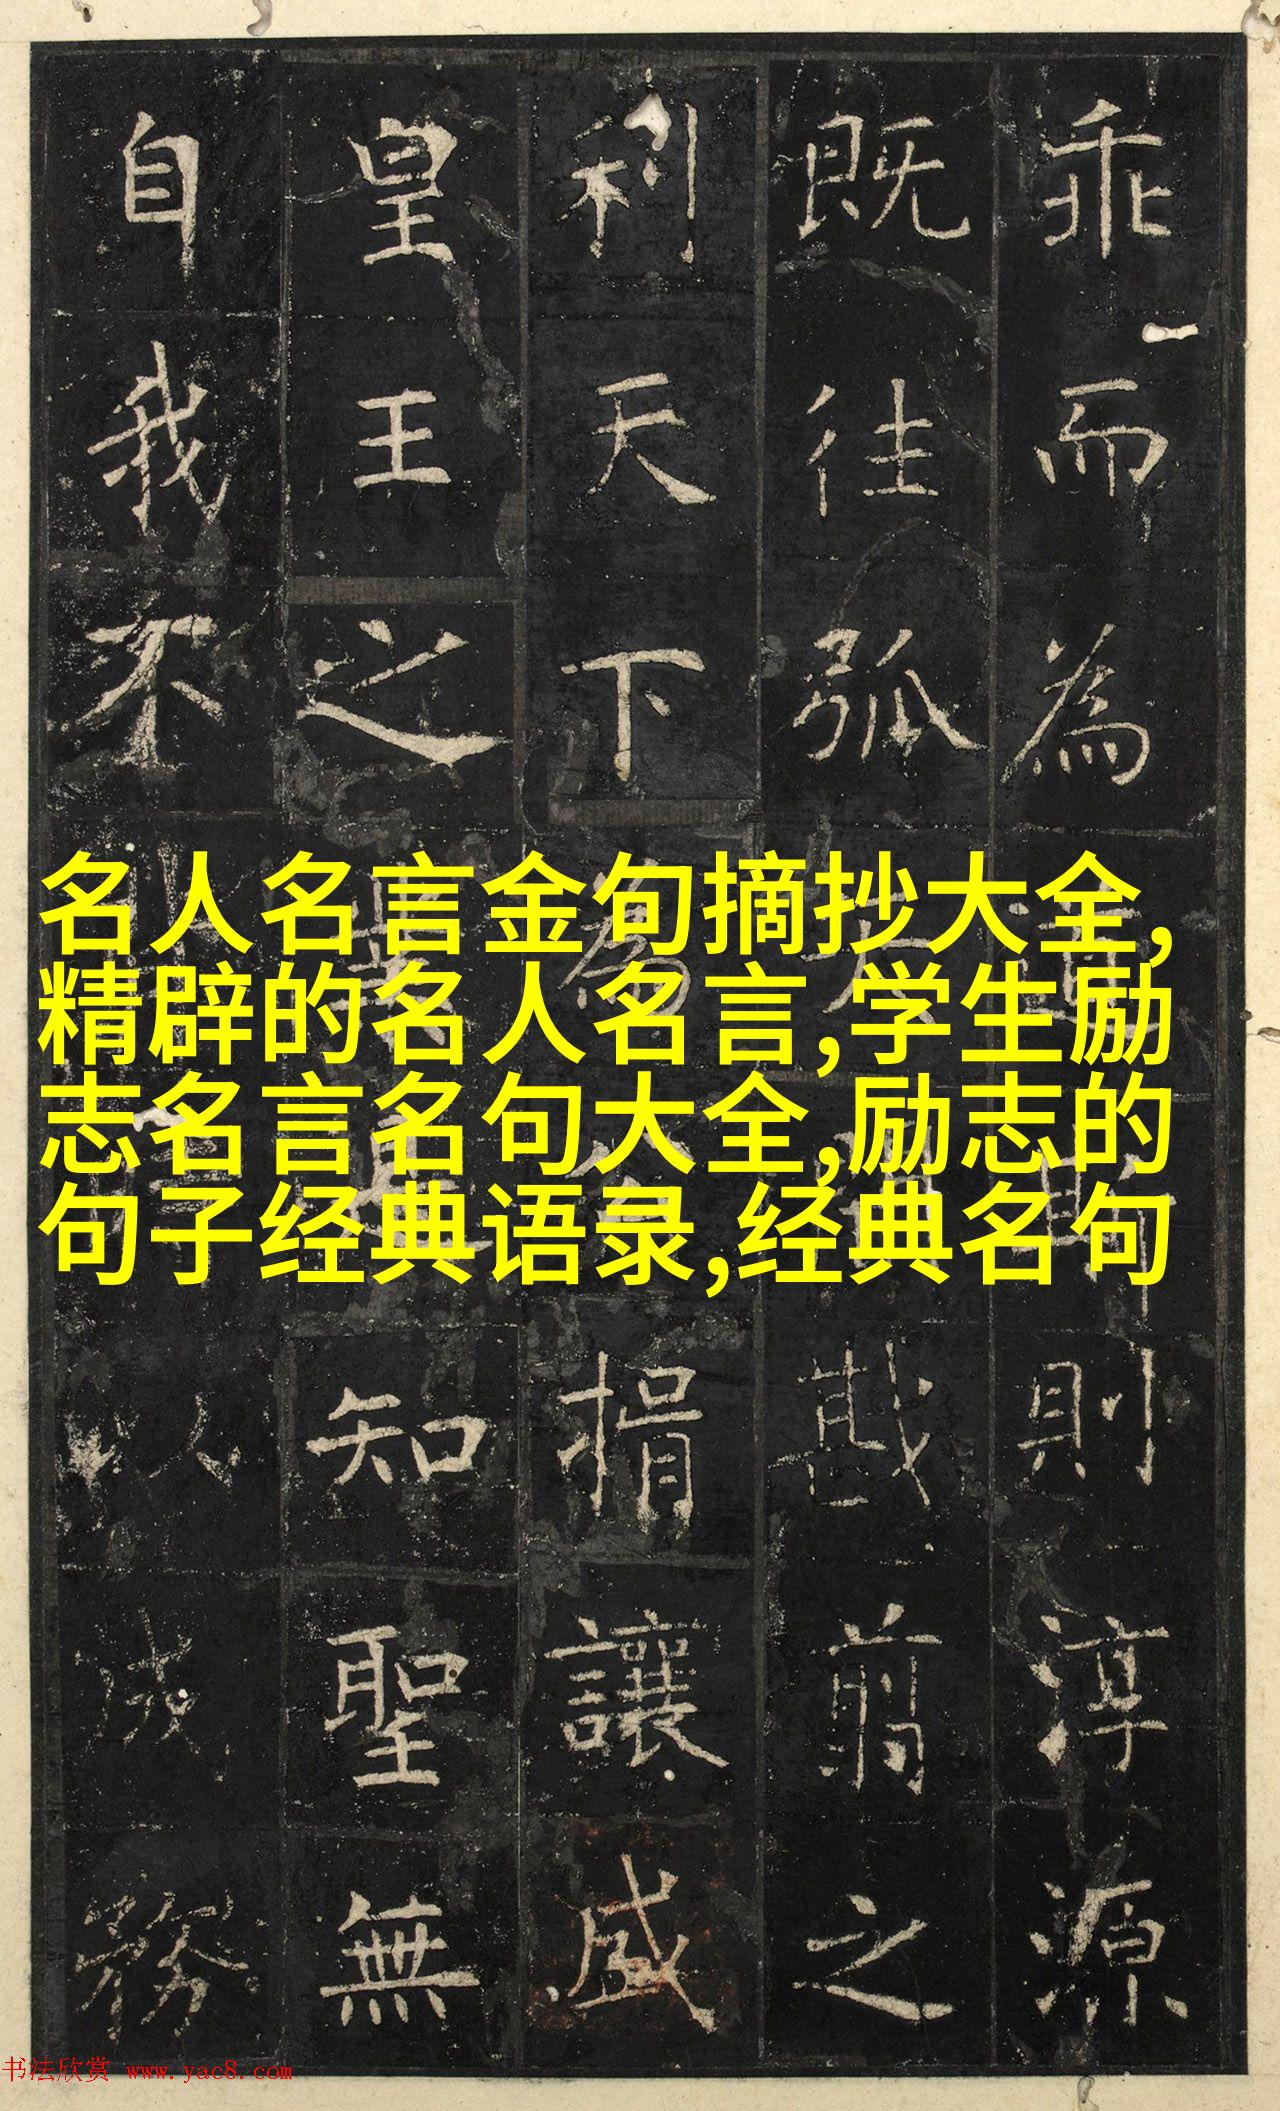 乖而為則淳源
既往弧戡翦之
利天下為捐讓盛
皇王之知聖無
自我不人務
名人名言金句摘抄大全,
精辟的名人名言,学生励
志名言名句大全,励志的
句子经典语录,经典名句
书法欣赏 www.yac8.com